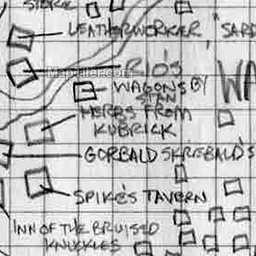 STORE
LEATHERWORKER
"SARD
RIO'S
WAGONS BY
STAN
WA
HERBS FROM
KUBRICK
GORBALD SKREBALD'S
SPIKE'S TAVERN
INN OF THE BRUISED
KNUCKLES